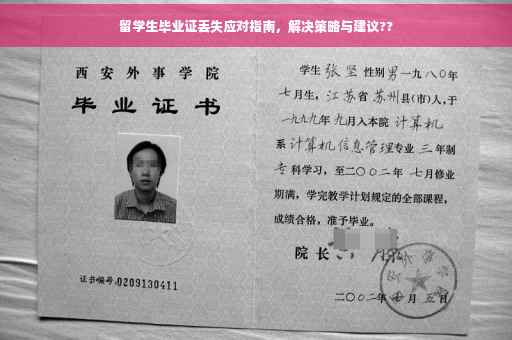 留学生毕业证丢失应对指南，解决策略与建议??
西安外事学院
毕业证书
证书编号:0209130411
学生 张坚 性别 男 一九八〇年
七月生，江苏省 苏州县(市)人,于
一九九九年 九月入本院 计算机
系 计算机信息管理专业 三 年制
专科学习，至二〇〇二年 七月修业
期满，学完教学计划规定的全部课程，
成绩合格，准予毕业。
院长
二〇〇二年 七 月 五 日